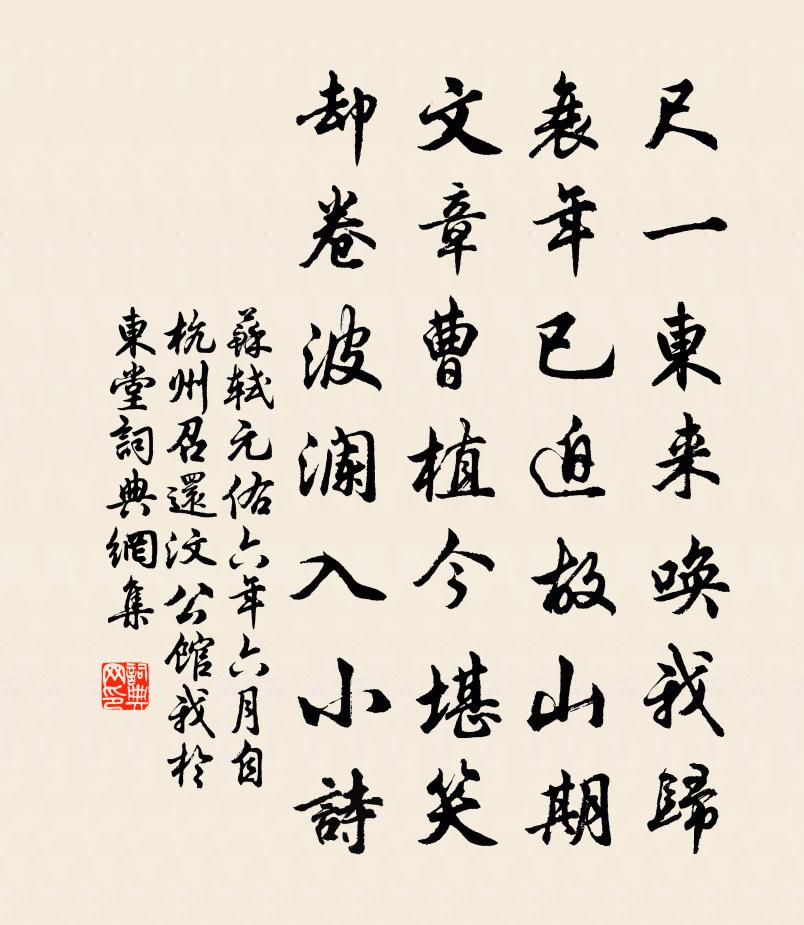 尺一東来喚我歸
衰年已迫故山期
文章曹植今堪笑
却卷波瀾入小詩
蘇軾元佑六年六月自
杭州召還汶公館我於
東堂詞典網集
詞典網印